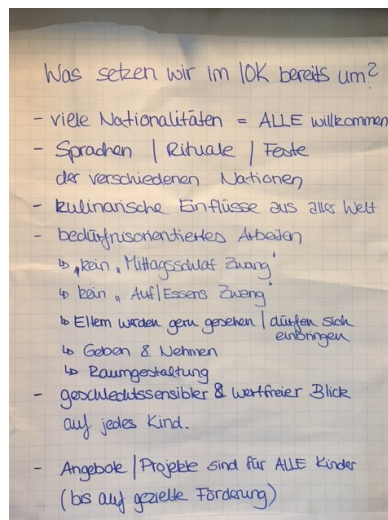 Was setzen wir im IOK bereits um?
- viele Nationalitäten = ALLE willkommen
- Sprachen | Rituale | Feste
der verschiedenen Nationen
- kulinarische Einflüsse aus aller Welt
- bedürfnisorientiertes Arbeiten
↳ „kein „Mittagsschlaf Zwang"
↳ kein „Auf/Essens Zwang"
↳ Eltern werden gern gesehen | dürfen sich
einbringen
↳ Geben & Nehmen
↳ Raumgestaltung
- geschlechtssensibler & wertfreier Blick
auf jedes Kind.
- Angebote | Projekte sind für ALLE Kinder
(bis auf gezielte Förderung)